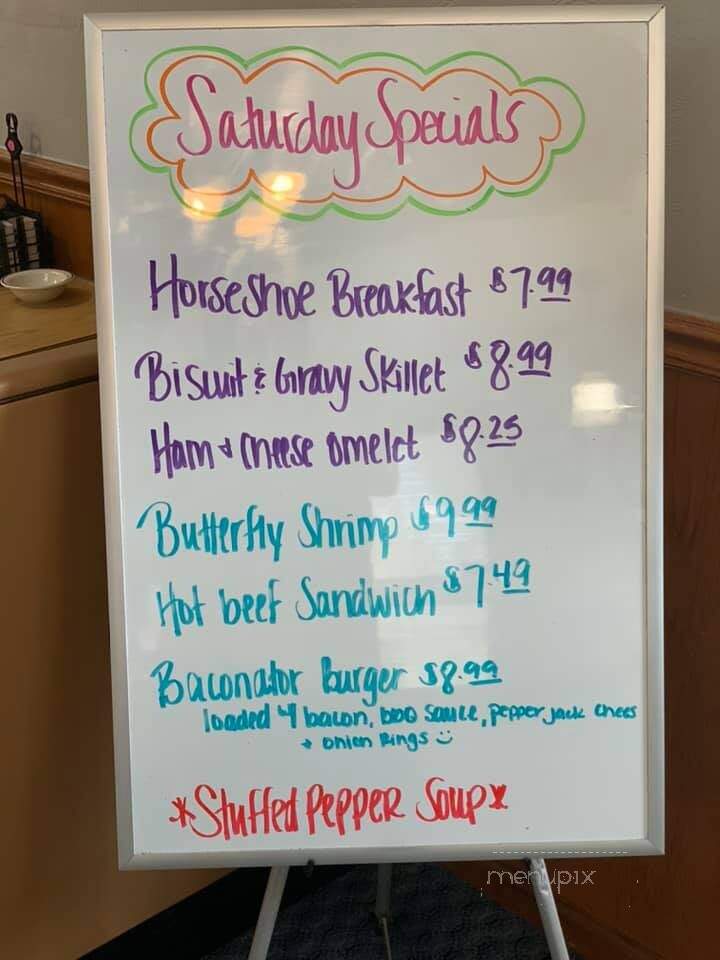 Saturday Specials
Horseshoe Breakfast $7.99
Biscuit & Gravy Skillet $8.99
Ham + Cheese Omelet $8.25
Butterfly Shrimp $9.99
Hot beef Sandwich $7.49
Baconator Burger $8.99
loaded w/ bacon, BBQ Sauce, Pepper jack chees
+ onion Rings
*Stuffed Pepper Soup*
menupix